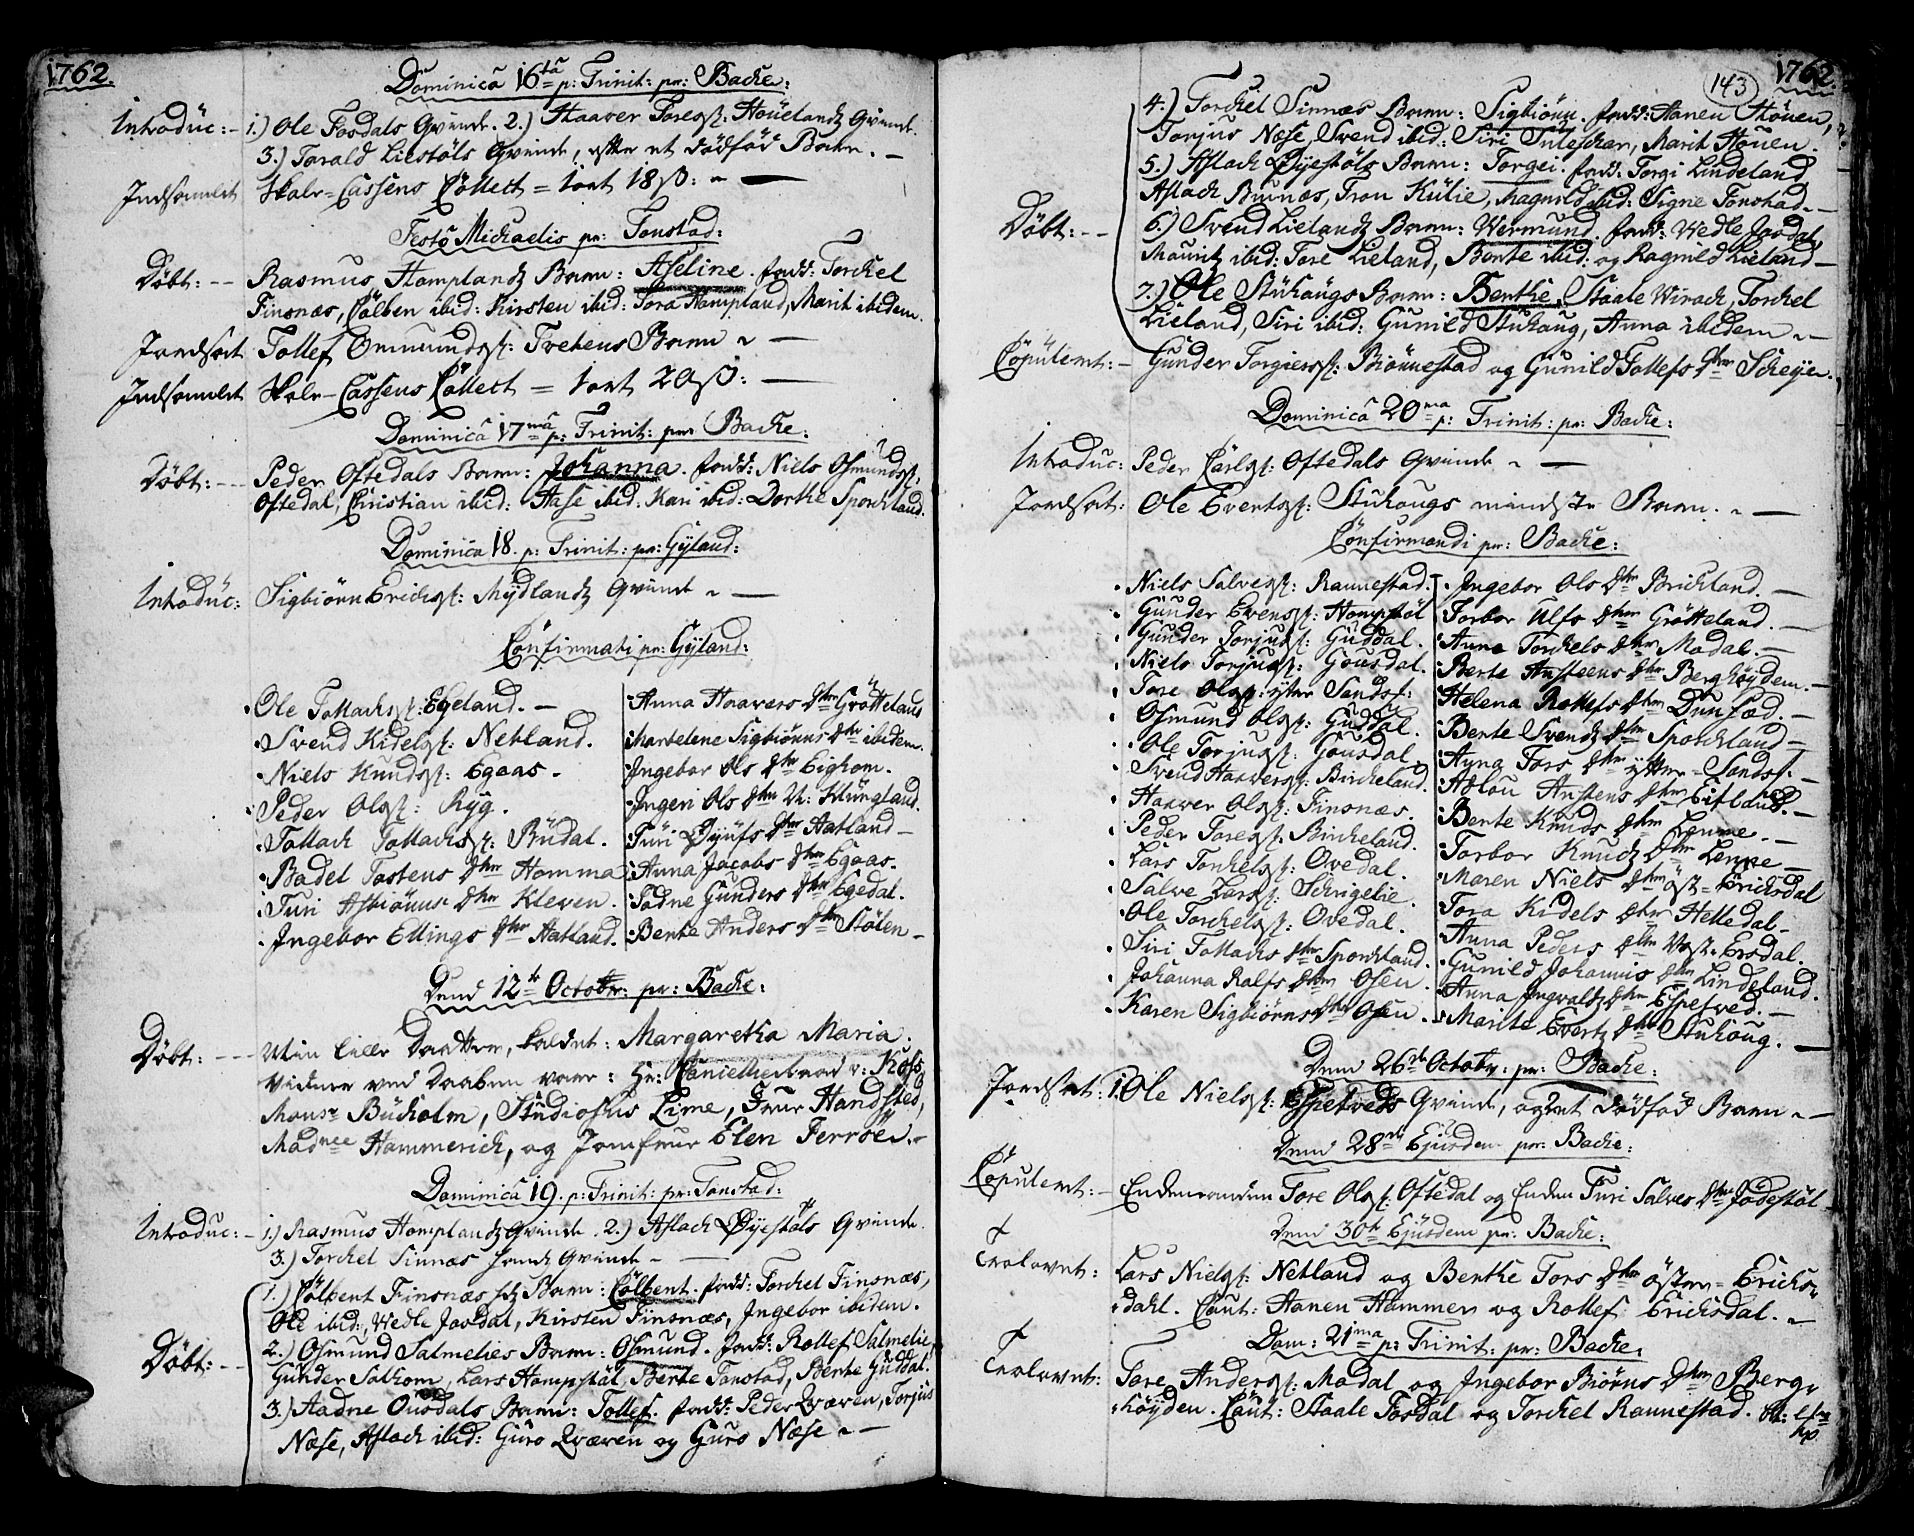 1762.
Dominicâ 16tâ p: Trinit: pr: Backe:
Introduc: – 1.) Ole Fosdals Qvinde. 2.) Haaver Toresß: Høuelandz Qvinde
3.) Torald Liestøls Qvinde, efter et dødfød Barn. –
Indsamlet Skole-Cassens Collect = 1 ort 18 ß: –
Festo Michaelis pr: Tonstad:
Døbt: -- Rasmus Hamplandz Barn: Aseline. fadd: Torckel
Finsnæs, Colben ibid: Kirsten ibid: Tora Hampland, Marit ibidem.
Jordfæst Tollef Omundsß: Tretens Barn –
Indsamlet Skole-Cassens Collect = 1 ort 20 ß: –
Dominicâ 17mâ p: Trinit: pr: Backe:
Døbt: --- Peder Oftedals Barn: Johanna. fadd: Niels Osmundsß:
Oftedal, Christian ibid: Aase ibid: Kari ibid: Dorthe Sporckland.
Dominica 18. p: Trinit: pr: Gyland:
Introduc: Sigbiørn Erichsß: Mydlandz Qvinde –
Confirmati pr: Gyland:
Ole Tollachsß: Egeland. –
Svend Kidelsß: Netland.
Niels Knudsß: Egaas –
Peder Olsß: Ryg.
Tollach Tollachsß: Rudal.
Badel Tostens Dtter Homma
Turi Asbiørns Dtter Kleven.
Ingebor Ellings Dtter Aatland.
Anna Haavers Dtter Grøtteland
Martelene Sigbiørns Dtter ibidem.
Ingebor Ols Dtter Eighom.
Ingeri Ols Dtter N: Klungland.
Turi Øyufs Dtter Aatland –
Anna Jacobs Dtter Egaas.
Tadne Gunders Dtter Egedal.
Bente Anders Dtter Stølen –
Dend 12te October: pr: Backe:
Døbt: --- Min lille Daatter, kaldet: Margaretha Maria.
Vidner ved Daaben vare: Hr:
Monsr Bucholm, Studiosus Lime, Frue Handsted,
Madmee Hammerich, og Jomfrue Elen Ferroe. –
Dominicâ 19. p: Trinit: pr: Tonstad:
Introduc: – 1.) Rasmus Hamplandz Qvinde. 2.) Aslach Øyestøls Qvinde.
3.) Torckel Sinnæs Qvinde –
1.) Colbent Finsnæs Barn: Colbent. fadd: Torckel Finsnæs,
Ole ibid:, Vedle Josdal, Kirsten Finsnæs, Ingebor ibidem.
Døbt: -- 2.) Osmund Salmelies Barn: Osmund. fadd: Rollef Salmelie,
Gunder Salhom, Lars Hampstøl, Berte Tonstad, Bente Guddal.
3.) Aadne Ousdals Barn: Tollef. fadd: Peder Qvæven, Torjus
Næse, Aslach ibid: Guro Qvæven og Guro Næse –
143
1762
4.) Torckel Sinnæs Barn: Sigbiørn. fadd: Hanen Høuen,
Torjus Næse, Svend ibid: Siri, Marit Høuen.
5.) Aslach Øyestøls Barn: Torgei. fadd: Torgi Lindeland
Aslach, Tron Kulie, Magnild ibid: Signe Tonstad. –
Døbt: -- 6.) Svend Lielandz Barn: Wermund. fadd: Vedle Josdal,
Mauritz ibid: Tore Lieland, Bente ibid: og Ragnild Lieland –
7.) Ole Stuhaugs Barn: Benthe. Staale Virach, Torckel
Lieland, Siri ibid: Gunild Stuhaug, Anna ibidem –
Copuleret: – Gunder Torgiersß: Biønnestad og Gunild Tollefs Dtter Scheyen.
Dominicâ 20ma p: Trinit: pr: Backe:
Introduc: Peder Carlsß: Oftedals Qvinde –
Jordfæst: Ole Evertsß: Stuhaugs mindste Barn. –
Confirmandi pr: Backe:
Niels Salvesß: Rannestad.
Gunder Evensß: Hompstøl
Gunder Torjusß: Guddal.
Niels Torjusß: Gousdal.
Tore Olsß: yttre Sandsf:
Osmund Olsß: Guddal.
Ole Torjusß: Gousdal.
Svend Haaversß: Birckeland.
Haaver Olsß: Finsnæs.
Peder Toresß: Birckeland.
Lars Torckelsß: Ovedal.
Salve Larsß: Schrigelie.
Ole Torckelsß: Ovedal.
Siri Tollachs Dtter Sporckland.
Johanna Ralfs Dtter Osen.
Karen Sigbiørns Dtter Osen.
Ingebor Ols Dtter Birckland. –
Torbor Ulfs Dtter Grøtteland. –
Anna Torckels Dtter Madal. –
Berte Ansteens Dtter Berghøyden. –
Helena Rollefs Dtter Dunsæd. –
Bente Svendz Dtter Sporckland –
Anna Tors Dtter yttre-Sandsf. –
Aslou Anstens Dtter Eitland. –
Bente Knuds Dtter Lenne. –
Torbor Knudz Dtter Lenne –
Maren Niels Dtter Øst-Ericksdal
Tora Kidels Dtter Helledal –
Anna Peders Dtter Vest-Ersdal.
Gunild Johannis Dtter Lindeland.
Anna Ingvaldz Dtter Espetved. –
Marite Evertz Dtter Stuhoug. –
Dem 26de Octobr: pr: Backe:
Jordfæst: 1. Ole Nielsß: Espetveds Qvinde, og 2 et dødfød Barn –
Dem 28de Ejusdem pr: Backe:
Copuleret: – Enckemanden Tore Olsß: Oftedal og Encken Turi Salves Dtter Jødestøl
Dem 30te Ejusdem pr: Backe:
Trolovet: Lars Nielsß: Netland og Benthe Tors Dtter Østre-Ericks-
dahl. Caut: Hanen Hammer og Rollef Ericksdal. –
Dom: 21ma p: Trinit: pr: Backe:
Trolovet: Tore Andersß: Madal og Ingebor Biørns Dtter Berg-
høyden. Caut: Staale Fosdal og Torckel Rannestad.